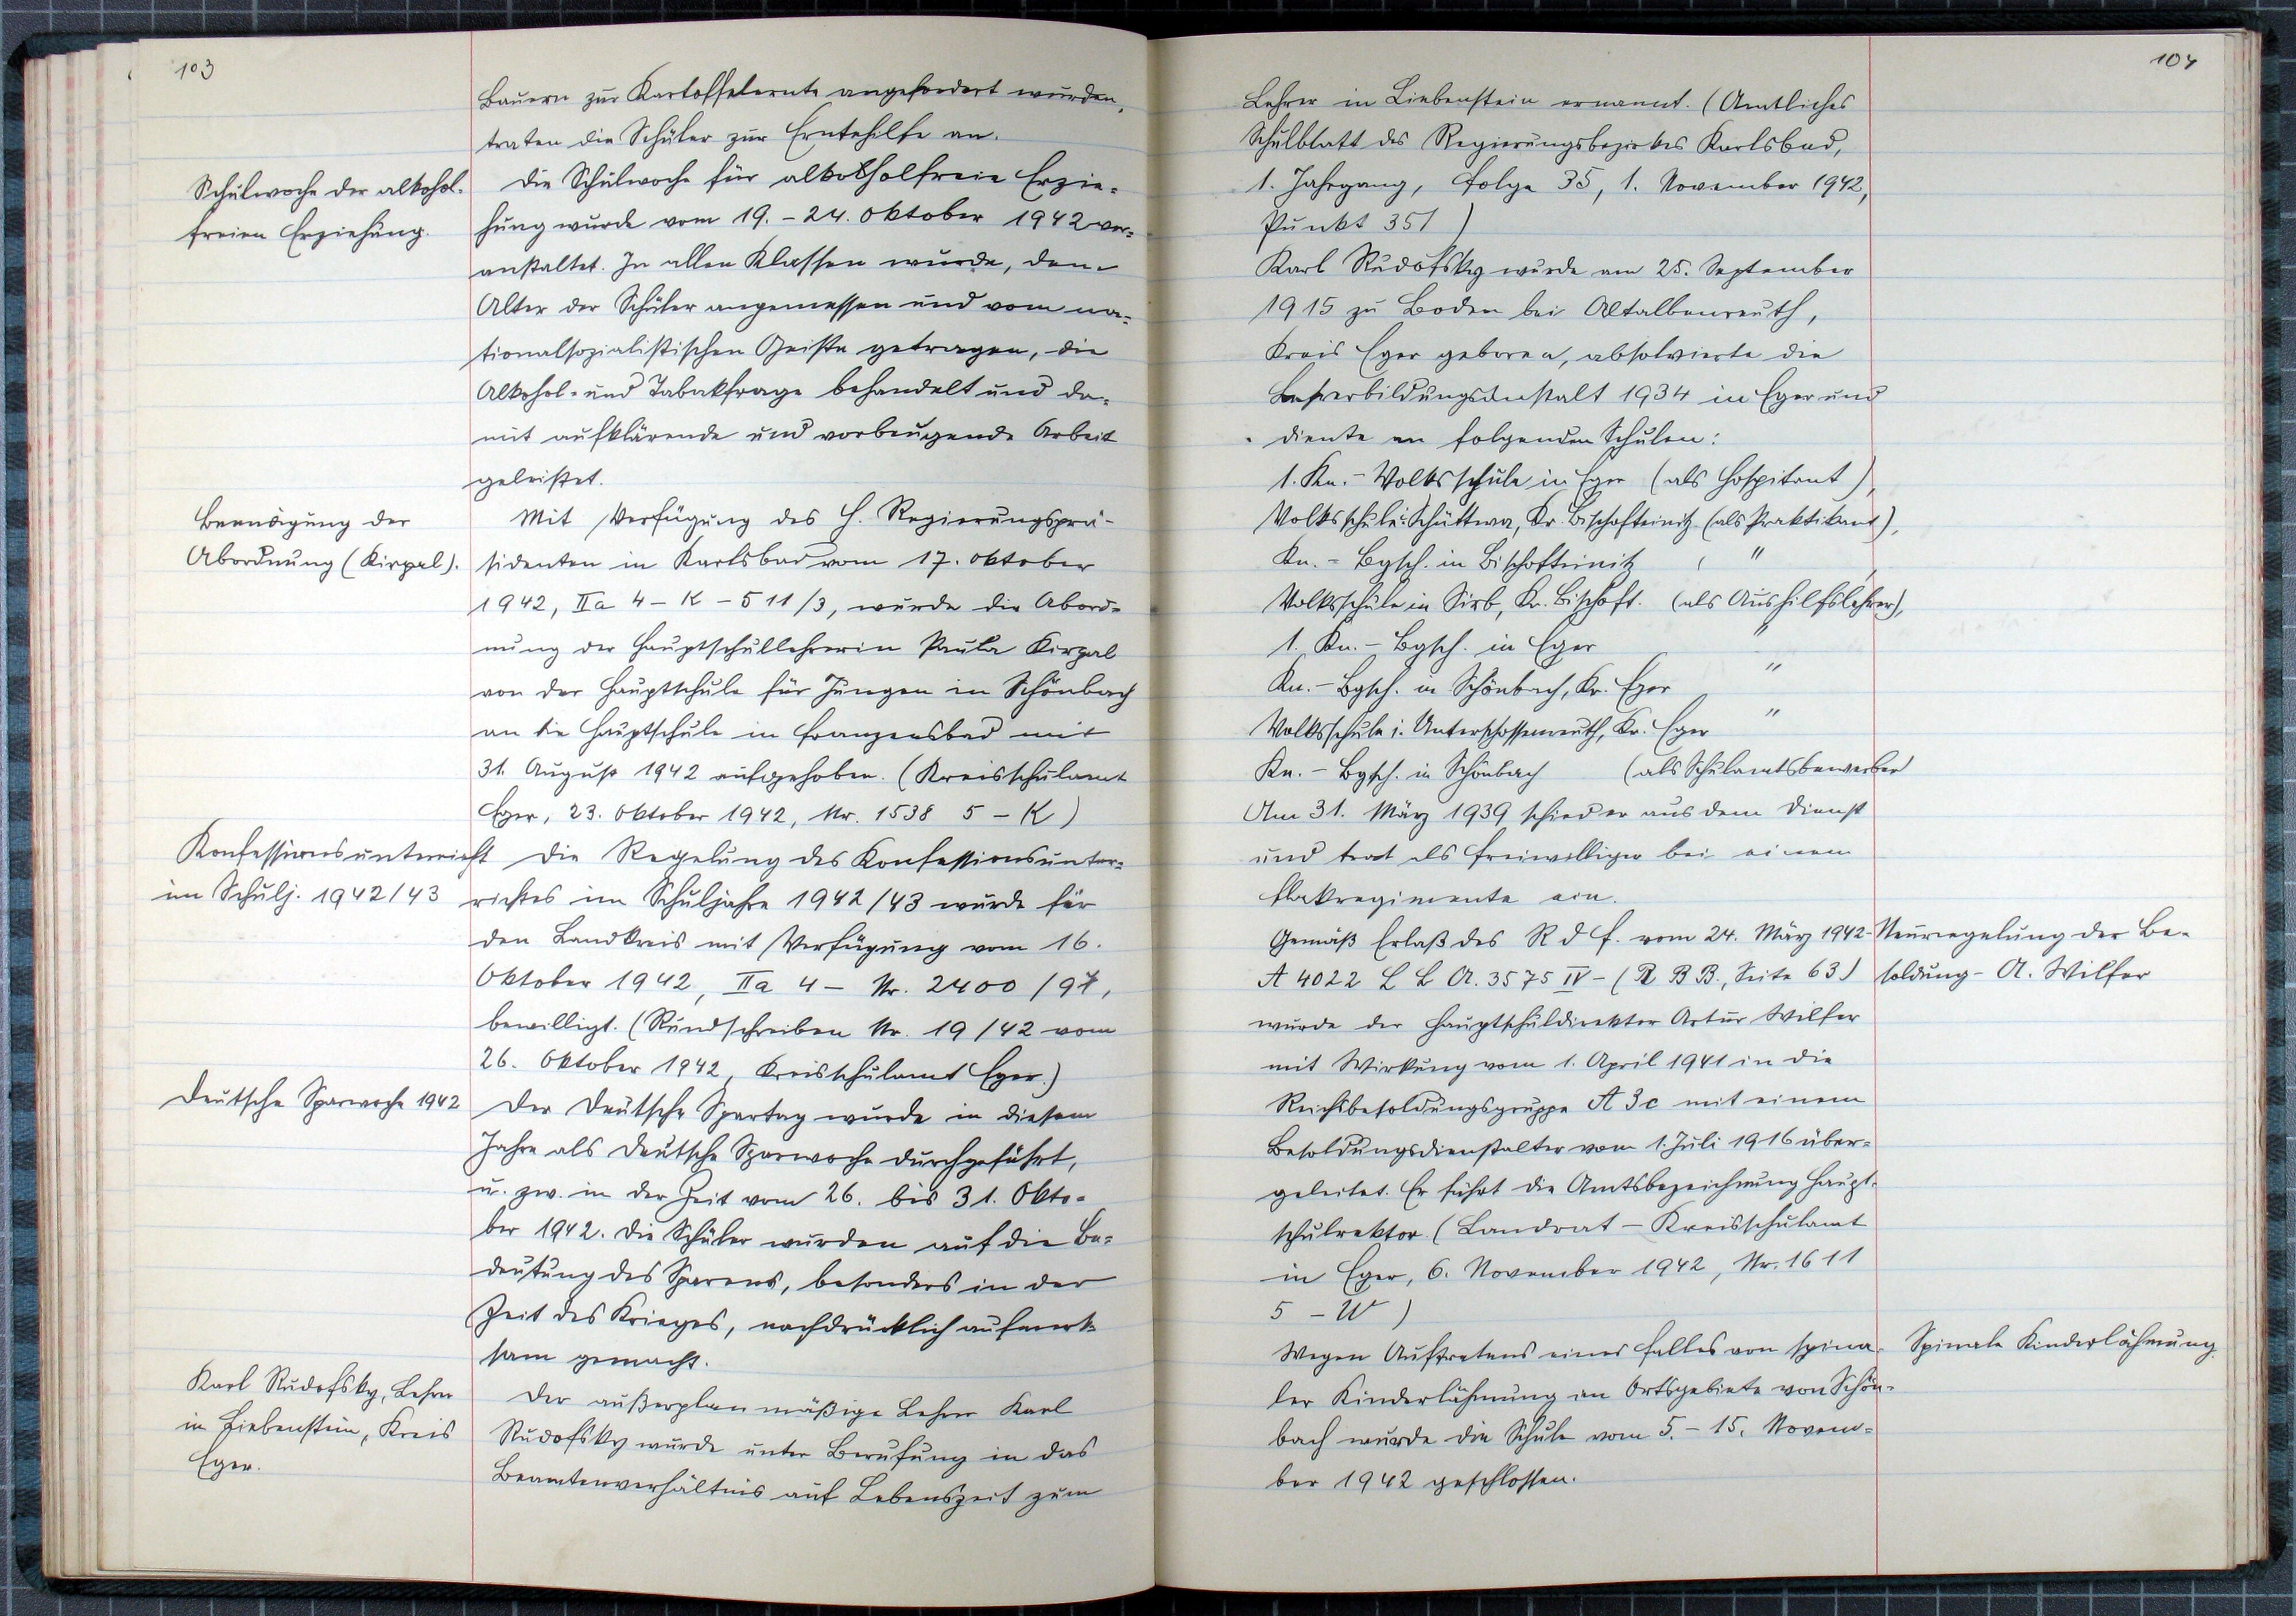 103
Bauern zur Kartoffelernte angefordert wurden,
traten die Schüler zur Erntehilfe an.
Schulwoche der alkohol-
freien Erziehung.
Die Schulwoche für alkoholfreie Erzie-
hung wurde vom 19. - 24. Oktober 1942 ver-
anstaltet. In allen Klassen wurde, dem
Alter der Schüler angemessen und vom na-
tionalsozialistischen Geiste getragen, die
Alkohol- und Tabakfrage behandelt und da-
mit aufklärende und vorbeugende Arbeit
geleistet.
Beendigung der
Abordnung (Kirpal).
Mit Verfügung des H. Regierungsprä-
sidenten in Karlsbad vom 17. Oktober
1942, IIa 4 - K - 511/3, wurde die Abord-
nung der Hauptschullehrerin Paula Kirpal
von der Hauptschule für Jungen in Schönbach
an die Hauptschule in Franzensbad mit
31. August 1942 aufgehoben. (Kreisschulamt
Eger, 23. Oktober 1942, Nr. 1538 5 - K)
Konfessionsunterricht
im Schulj. 1942/43
Die Regelung des Konfessionsunter-
richtes im Schuljahre 1942/43 wurde für
den Landkreis mit Verfügung vom 16.
Oktober 1942, IIa 4 - Nr. 2400 /
bewilligt. (Rundschreiben Nr. 19/42 vom
26. Oktober 1942, Kreisschulamt Eger.)
Deutsche Sparwoche 1942
Der Deutsche Spartag wurde in diesem
Jahre als Deutsche Sparwoche durchgeführt,
u. zw. in der Zeit vom 26. bis 31. Okto-
ber 1942. Die Schüler wurden auf die Be-
deutung des Sparens, besonders in der
Zeit des Krieges, nachdrücklich aufmerk-
sam gemacht.
Karl Rudofsky, Lehrer
in Liebenstein, Kreis
Eger.
Der außerplanmäßige Lehrer Karl
Rudofsky wurde unter Berufung in das
Beamtenverhältnis auf Lebenszeit zum
104
Lehrer in Liebenstein ernannt. (Amtliches
Schulblatt des Regierungsbezirkes Karlsbad,
1. Jahrgang, Folge 35, 1. November 1942,
Punkt 351)
Karl Rudofsky wurde am 25. September
1915 zu Boden bei Altalbenreuth,
Kreis Eger geboren, absolvierte die
Lehrerbildungsanstalt 1934 in Eger und
diente an folgenden Schulen:
1. Kn.- Volksschule in Eger (als Hospitant),
Volksschule i. Schüttwa, Kr. Bischofteinitz (als Praktikant),
Kn. - Bgsch. in Bischofteinitz ( " ,
Volksschule in Sirb, Kr. Bischoft. (als Aushilfslehrer),
1. Kn. - Bgsch. in Eger "
Kn. - Bgsch. in Schönbach, Kr. Eger "
Volksschule i. Unterschossenreuth, Kr. Eger "
Kn. - Bgsch. in Schönbach (als Schulamtsbewerber
Am 31. März 1939 schied er aus dem Dienst
und trat als Freiwilliger bei einem
Flakregimente ein.
Gemäß Erlaß des R d F. vom 24. März 1942-
A 4022 L L A. 3575 IV - (R B B., Seite 63)
Neuregelung der Be-
soldung - A. Wilfer
wurde der Hauptschuldirektor Artur Wilfer
mit Wirkung vom 1. April 1941 in die
Reichsbesoldungsgruppe A 3c mit einem
Besoldungsdienstalter vom 1. Juli 1916 über-
geleitet. Er führt die Amtsbezeichnung Haupt-
schulrektor. (Landrat - Kreisschulamt
in Eger, 6. November 1942, Nr. 1611
5 - W)
Spinale Kinderlähmung
Wegen Auftretens eines Falles von spina-
ler Kinderlähmung im Ortsgebiete von Schön-
bach wurde die Schule vom 5. - 15. Novem-
ber 1942 geschlossen.